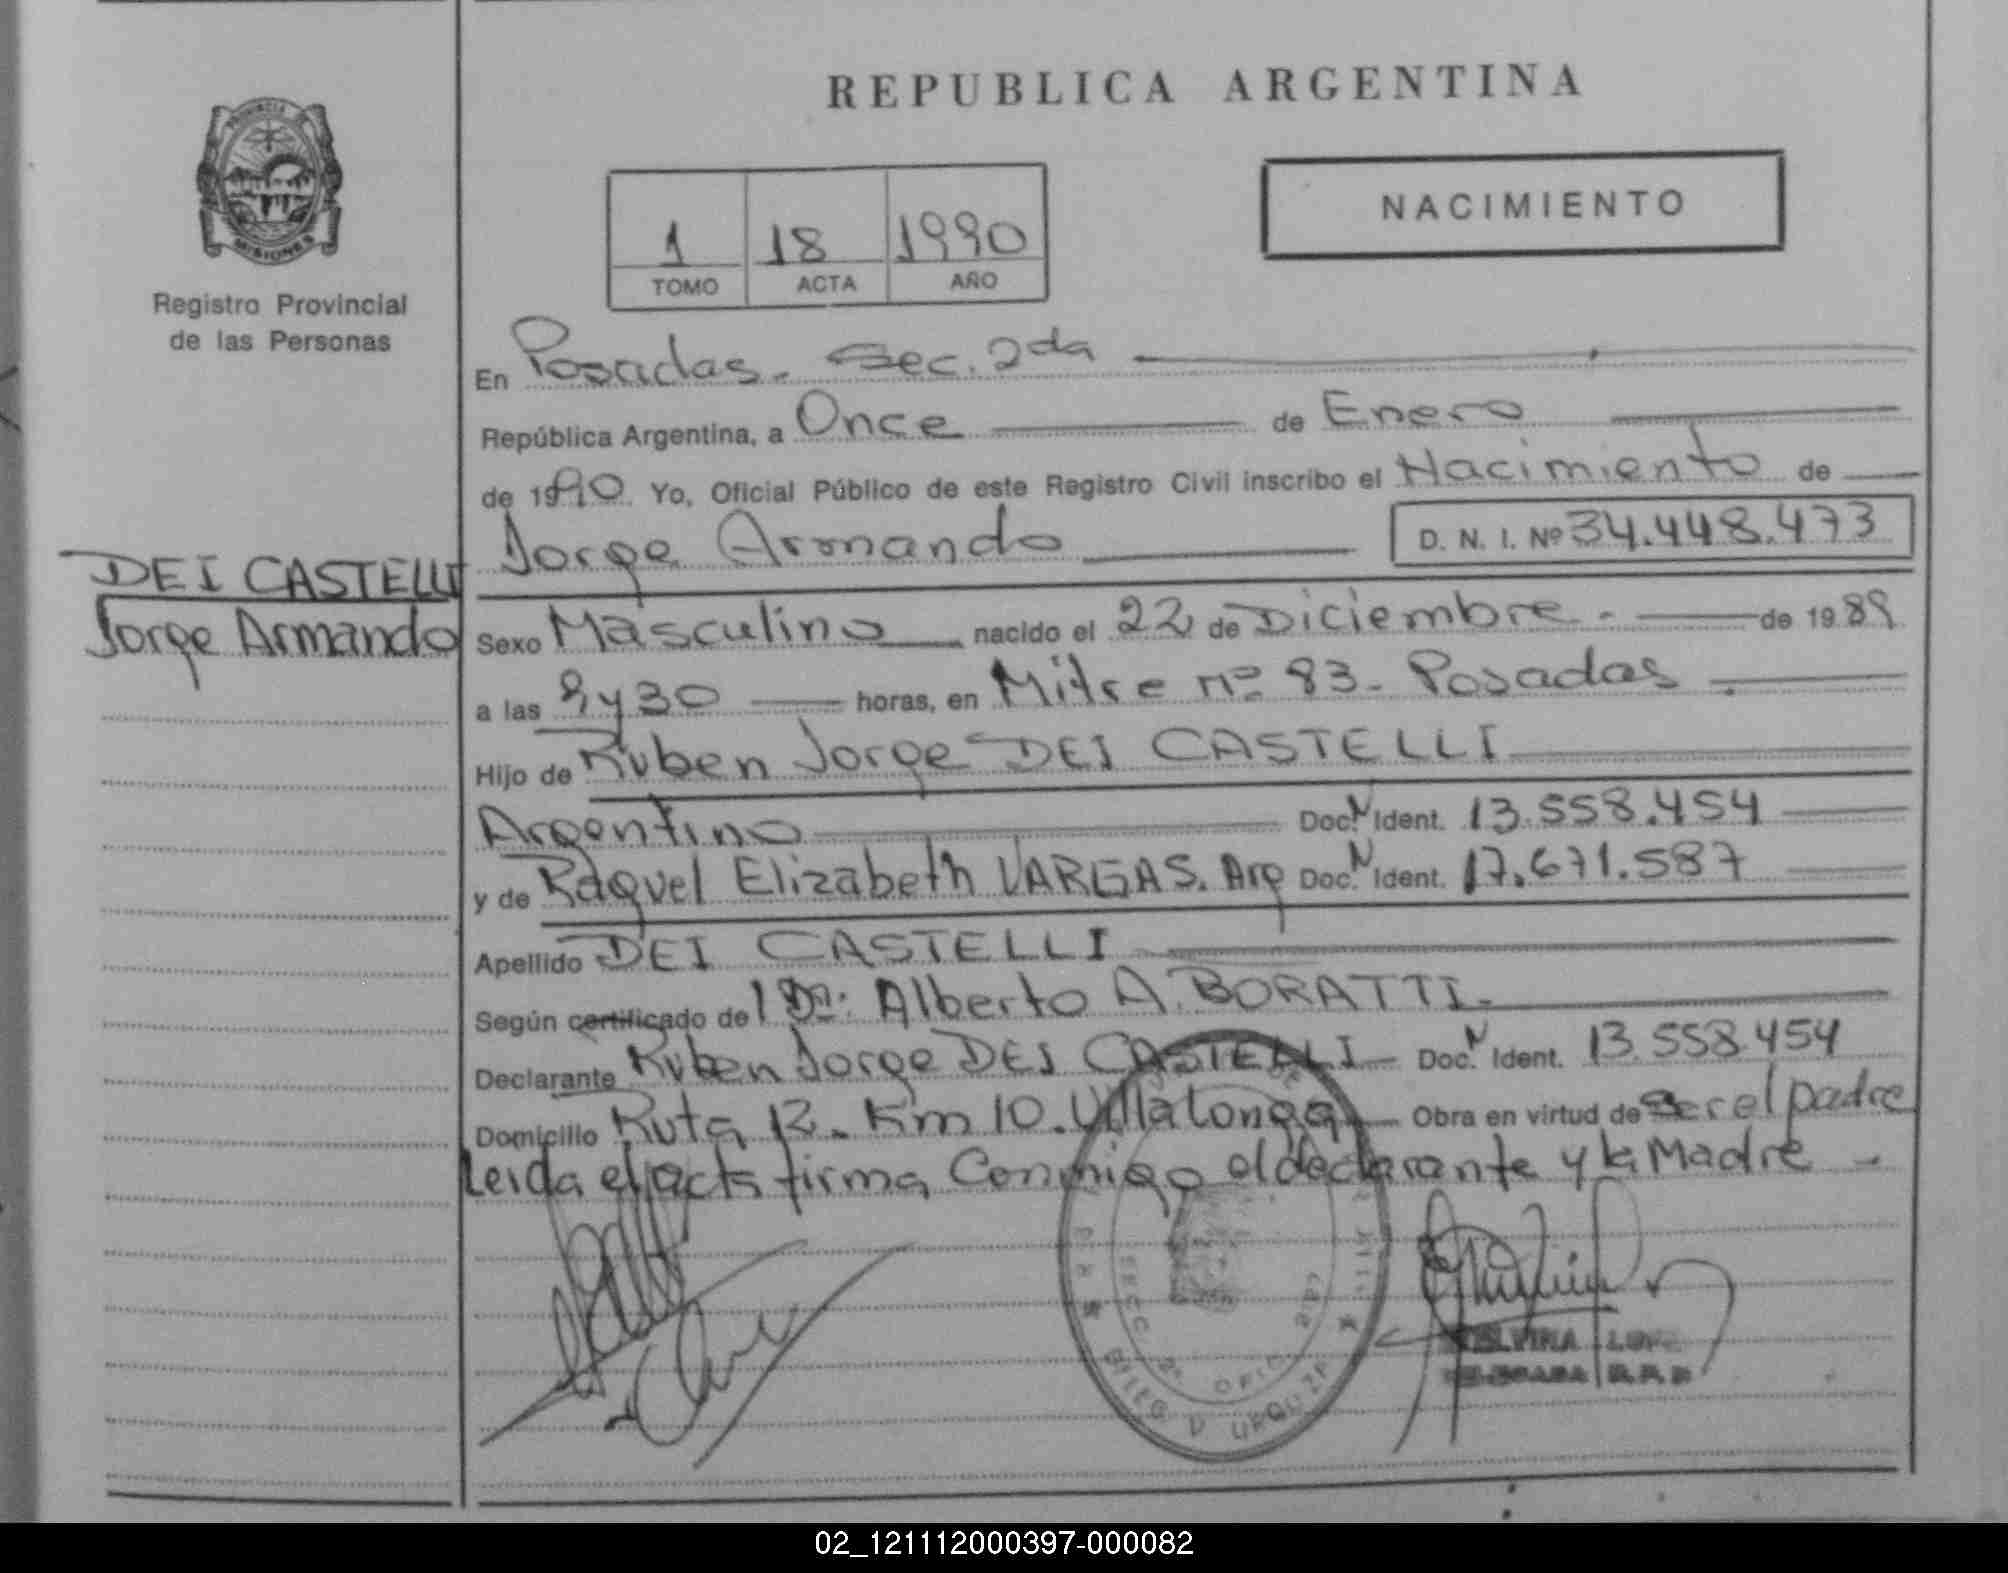 REPUBLICA ARGENTINA
PROVINCIA DE
MISIONES
Registro Provincial
de las Personas
NACIMIENTO
1 18 1990
TOMO ACTA AÑO
En Posadas. Sec. 2da
República Argentina, a Once de Enero
de 1990 Yo, Oficial Público de este Registro Civil inscribo el Nacimiento de
Jorge Armando D. N. I. Nº 34.448.473
DEI CASTELLI
Jorge Armando
Sexo Masculino nacido el 22 de Diciembre. de 1989
a las 9 y 30 horas, en Mitre nº 83. Posadas
Hijo de Ruben Jorge DEI CASTELLI
Argentino Doc. N Ident. 13.558.454
y de Raquel Elizabeth VARGAS. Arg Doc. N Ident. 17.671.587
Apellido DEI CASTELLI
Según certificado del Dr. Alberto A. BORATTI.
Declarante Ruben Jorge DEI CASTELLI Doc. N Ident. 13.558.454
Domicilio Ruta 12. Km 10. Villalonga Obra en virtud de ser el padre
Leida el acta firma Conmigo el declarante y la Madre
SECC 2a OFIC
DELEG V URQUIZA
02_121112000397-000082